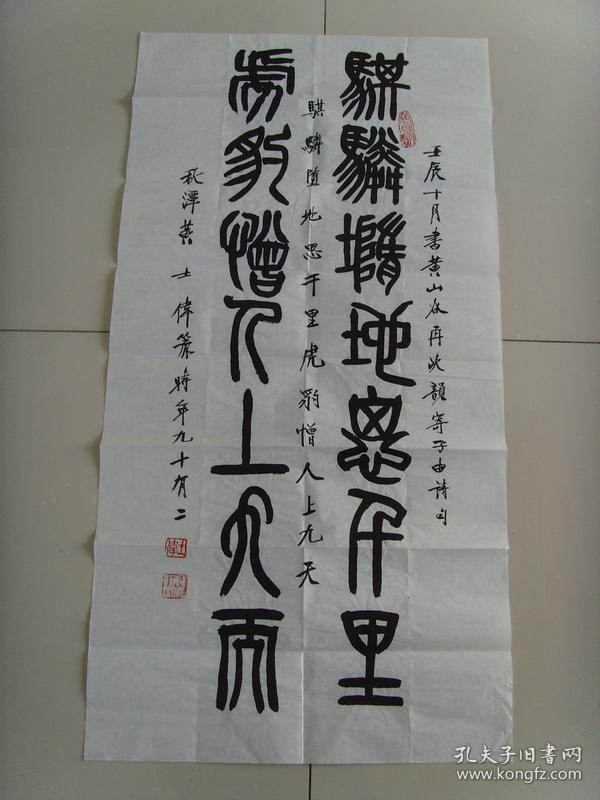 壬辰十月書黄山谷再次韻寄子由詩句
騏驎墮地思千里
騏驎墮地思千里虎豹憎人上九天
虎豹憎人上九天
黄士偉篆時年九十有二
孔夫子旧書网
www.kongfz.com